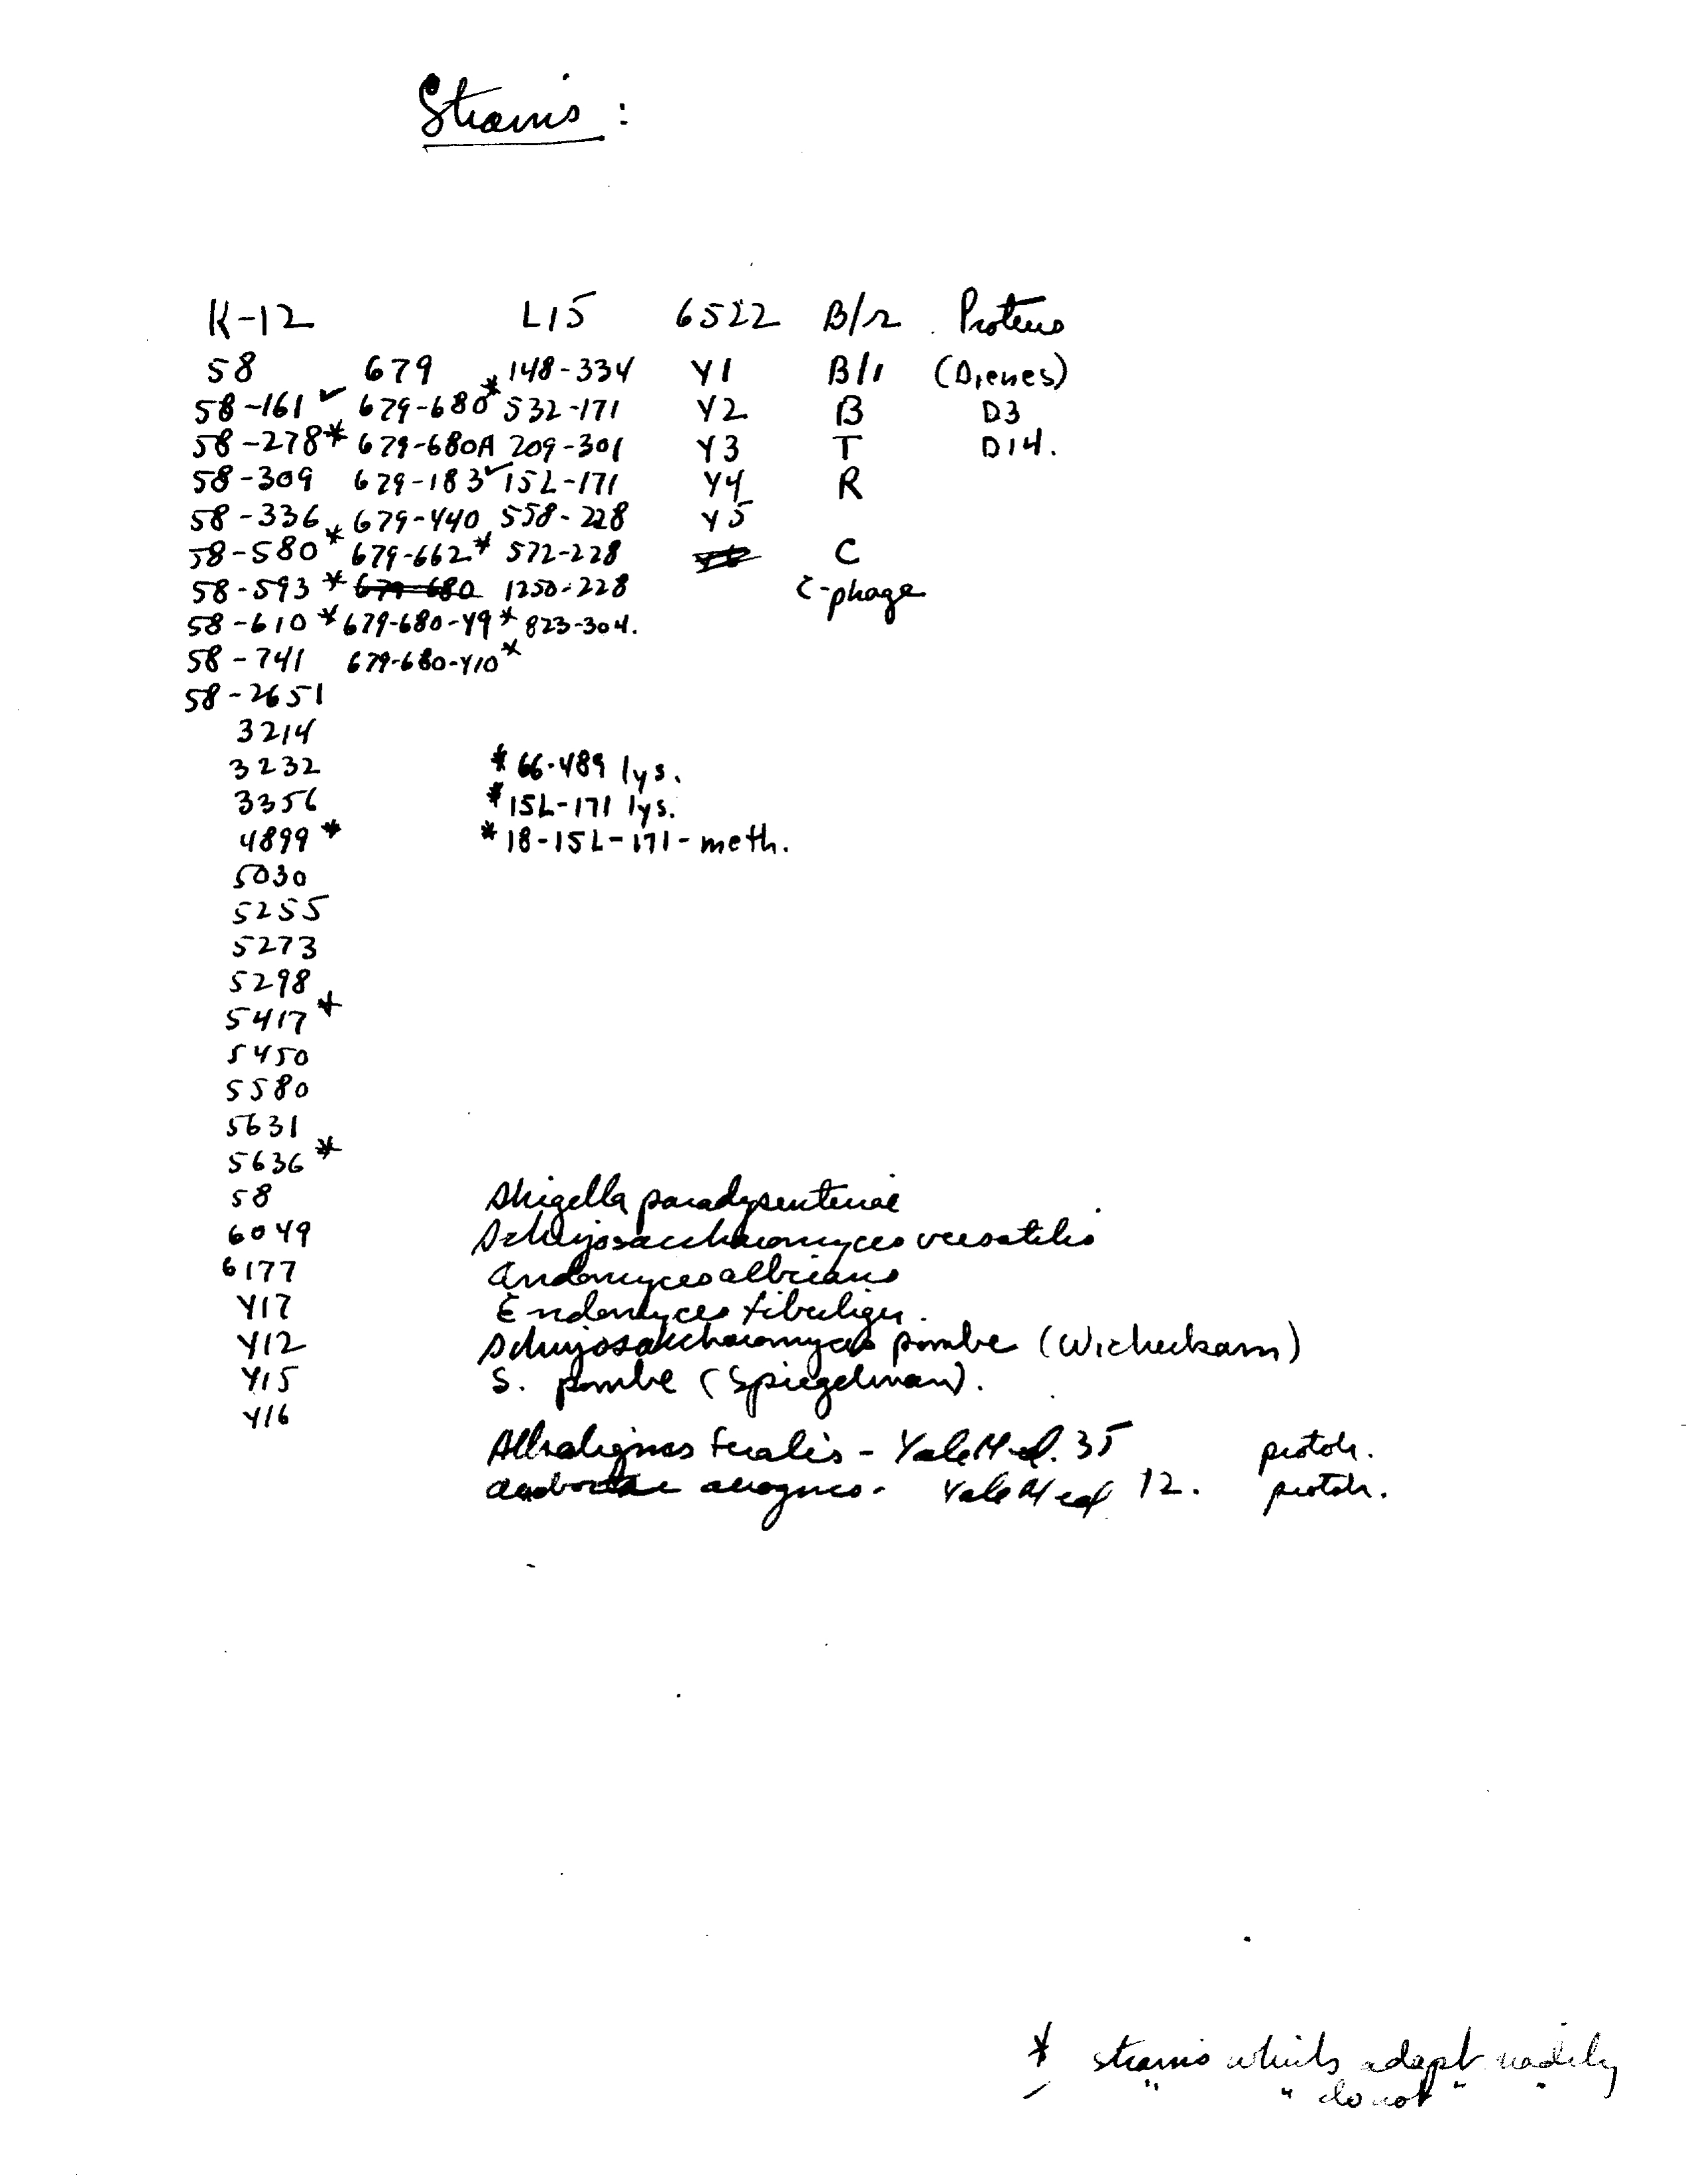 Strains :
K-12 L15 6522 B/r Proteus
58 679 148-334 Y1 B/1 (Dienes)
58-161 ✓ 679-680* 532-171 Y2 B D3
58-278* 679-680A 209-301 Y3 T D14.
58-309 679-183 ✓ 15L-171 Y4 R
58-336 679-440 558-228 Y5
58-580* 679-662* 572-228 C
58-593* 679-680 1250-228 C-phage
58-610* 679-680-Y9* 823-304.
58-741 679-680-Y10*
58-2651
3214
3232 * 66-489 lys.
3356 * 15L-171 lys.
4899* * 18-15L-171-meth.
5030
5255
5273
5298
5417*
5450
5580
5631
5636*
58 Shigella paradysenteriae
6049 Schizosaccharomyces versatilis
6177 albicans
Y17 Endomyces fibuliger.
Y12 Schizosaccharomyces pombe (Wickerham)
Y15 S. pombe (Spiegelman).
Y16
fecalis - Yale Med. 35 prototr.
aerogenes. Yale Med 12. prototr.
* strains which adapt readily
✓ " " do not " "